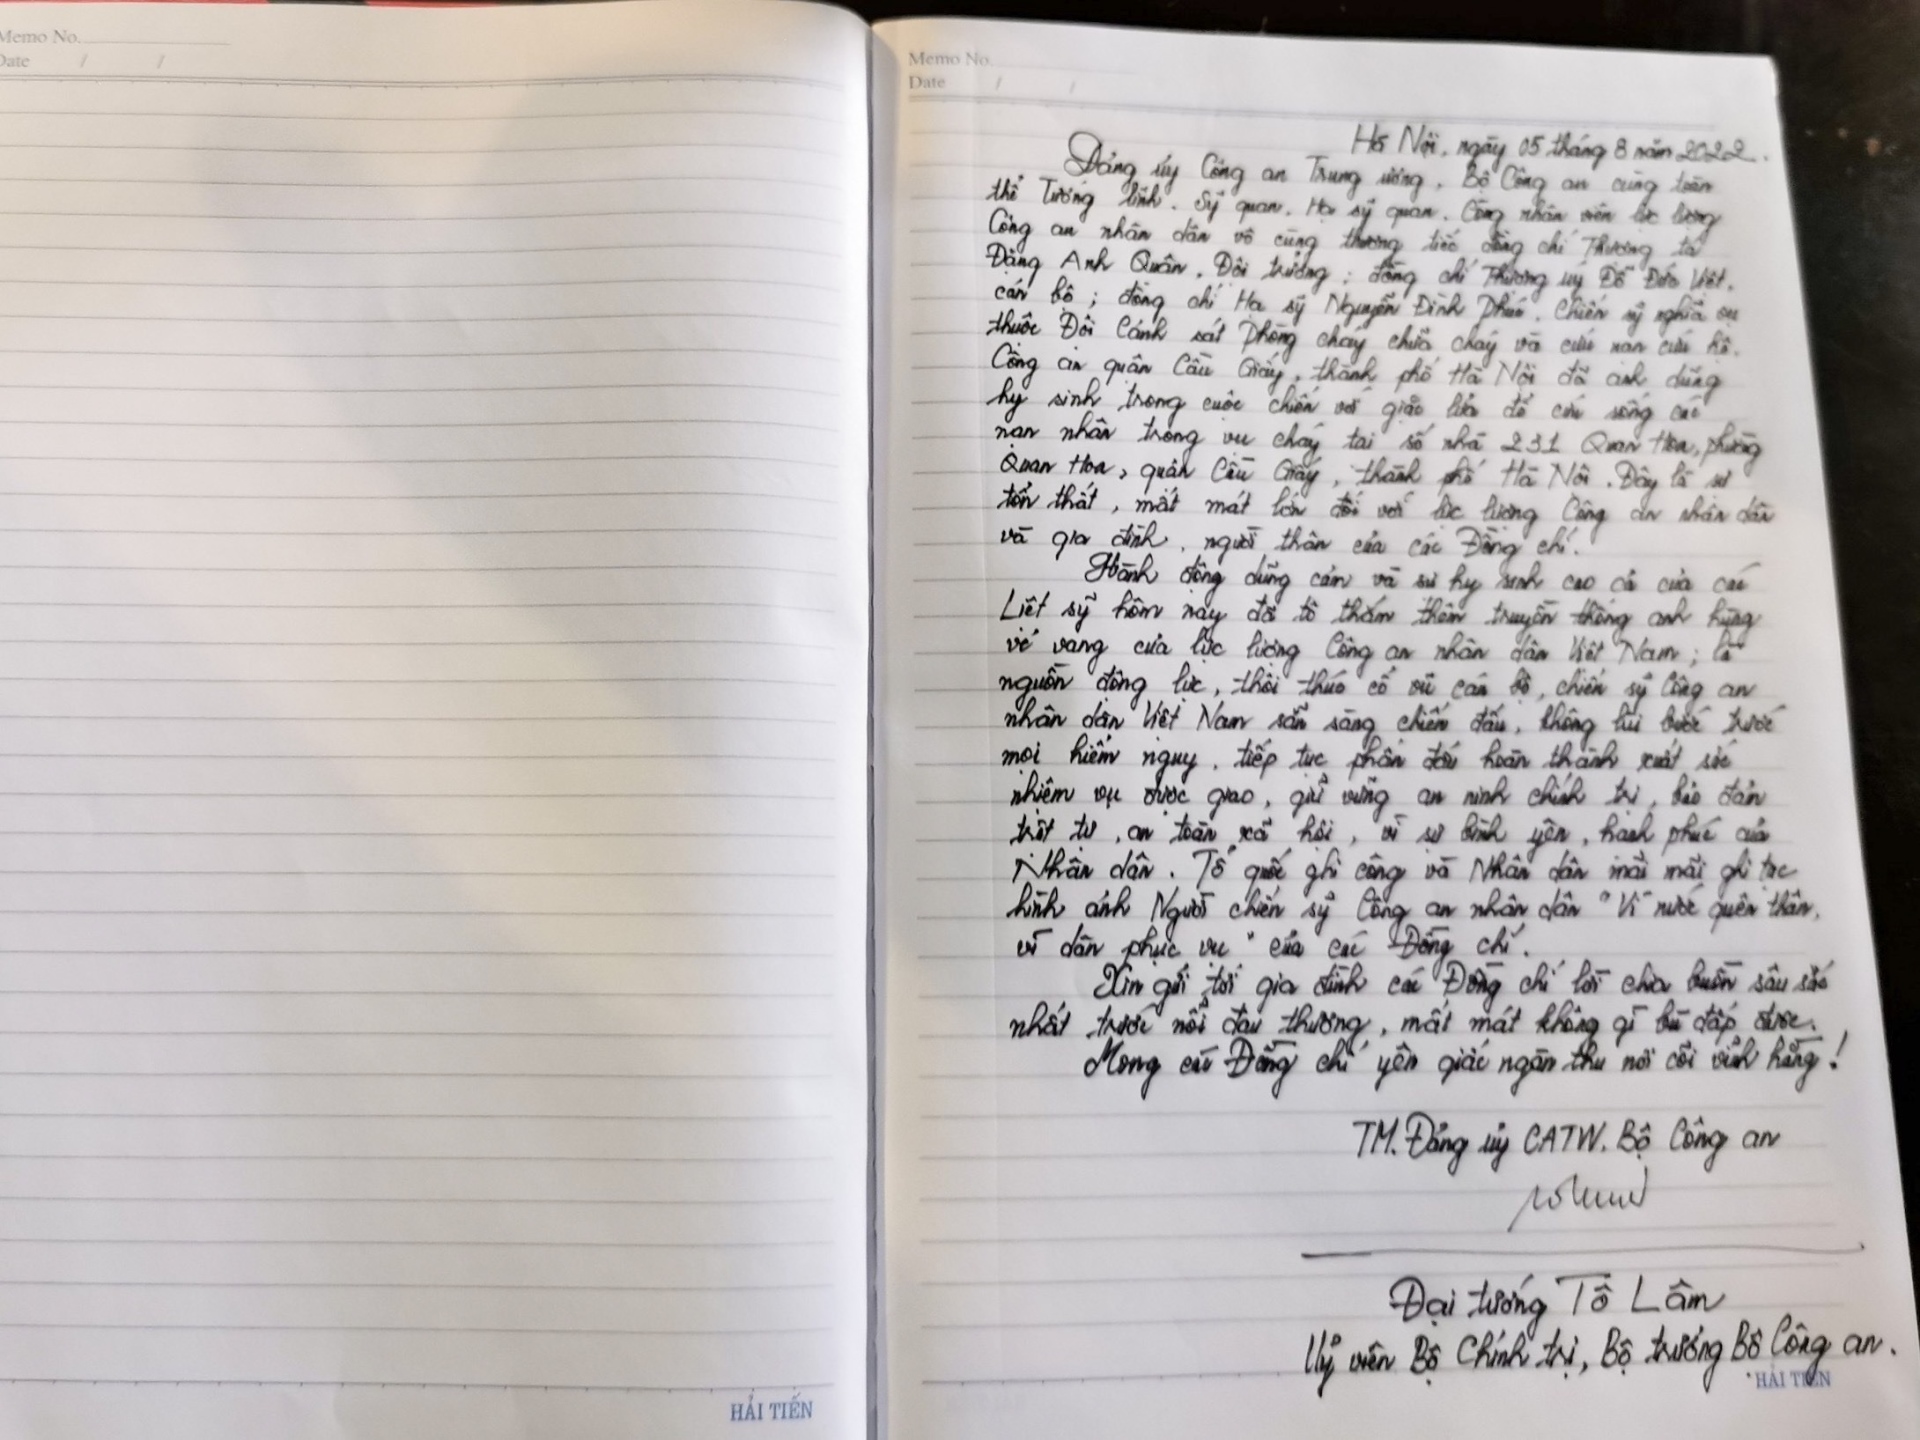 Memo No.
Date / /
HẢI TIẾN
Memo No.
Date / /
Hà Nội, ngày 05 tháng 8 năm 2022.
Đảng ủy Công an Trung ương, Bộ Công an cùng toàn
thể Tướng lĩnh, Sỹ quan, Hạ sỹ quan, Công nhân viên lực lượng
Công an nhân dân vô cùng thương tiếc đồng chí Thượng tá
Đặng Anh Quân, Đội trưởng; đồng chí Thượng uý Đỗ Đức Việt,
cán bộ; đồng chí Hạ sỹ Nguyễn Đình Phúc, Chiến sỹ nghĩa vụ
thuộc Đội Cảnh sát Phòng cháy chữa cháy và cứu nạn cứu hộ,
Công an quận Cầu Giấy, thành phố Hà Nội đã anh dũng
hy sinh trong cuộc chiến với giặc lửa để cứu sống các
nạn nhân trong vụ cháy tại số nhà 231 Quan Hoa, phường
Quan Hoa, quận Cầu Giấy, thành phố Hà Nội. Đây là sự
tổn thất, mất mát lớn đối với lực lượng Công an nhân dân
và gia đình, người thân của các Đồng chí.
Hành động dũng cảm và sự hy sinh cao cả của các
Liệt sỹ hôm nay đã tô thắm thêm truyền thống anh hùng
vẻ vang của lực lượng Công an nhân dân Việt Nam; là
nguồn động lực, thôi thúc cổ vũ cán bộ, chiến sỹ Công an
nhân dân Việt Nam sẵn sàng chiến đấu, không lùi bước trước
mọi hiểm nguy, tiếp tục phấn đấu hoàn thành xuất sắc
nhiệm vụ được giao, giữ vững an ninh chính trị, bảo đảm
trật tự, an toàn xã hội, vì sự bình yên, hạnh phúc của
Nhân dân. Tổ quốc ghi công và Nhân dân mãi mãi ghi tạc
hình ảnh Người chiến sỹ Công an nhân dân "Vì nước quên thân,
vì dân phục vụ" của các Đồng chí.
Xin gửi tới gia đình các Đồng chí lời chia buồn sâu sắc
nhất trước nỗi đau thương, mất mát không gì bù đắp được.
Mong các Đồng chí yên giấc ngàn thu nơi cõi vĩnh hằng!
TM. Đảng uỷ CATW. Bộ Công an
Đại tướng Tô Lâm
Uỷ viên Bộ Chính trị, Bộ trưởng Bộ Công an.
HẢI TIẾN